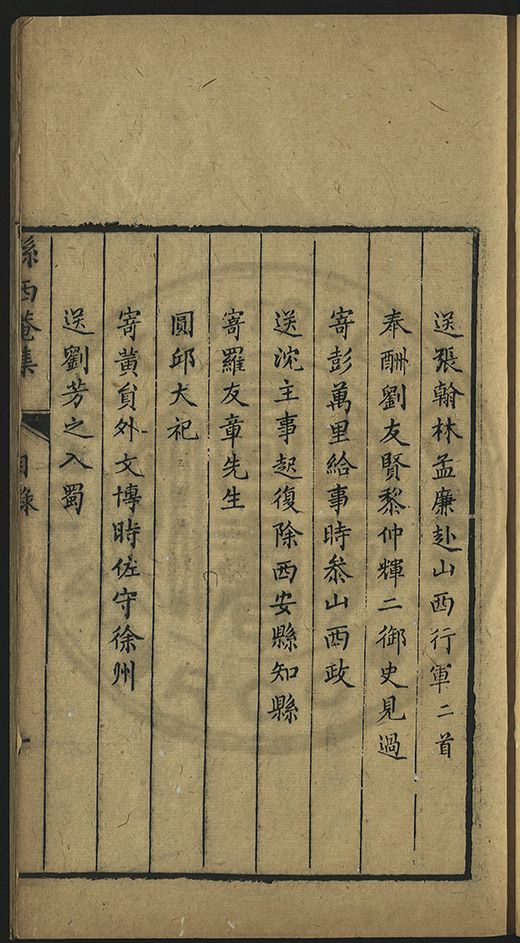 送張翰林孟廉赴山西行軍二首
奉酬劉友賢黎仲輝二御史見過
寄彭萬里給事時叅山西政
送沈主事起復除西安縣知縣
寄羅友章先生
圓邱大祀
寄黄貟外文博時佐守徐州
送劉芳之入蜀
西菴集
目錄